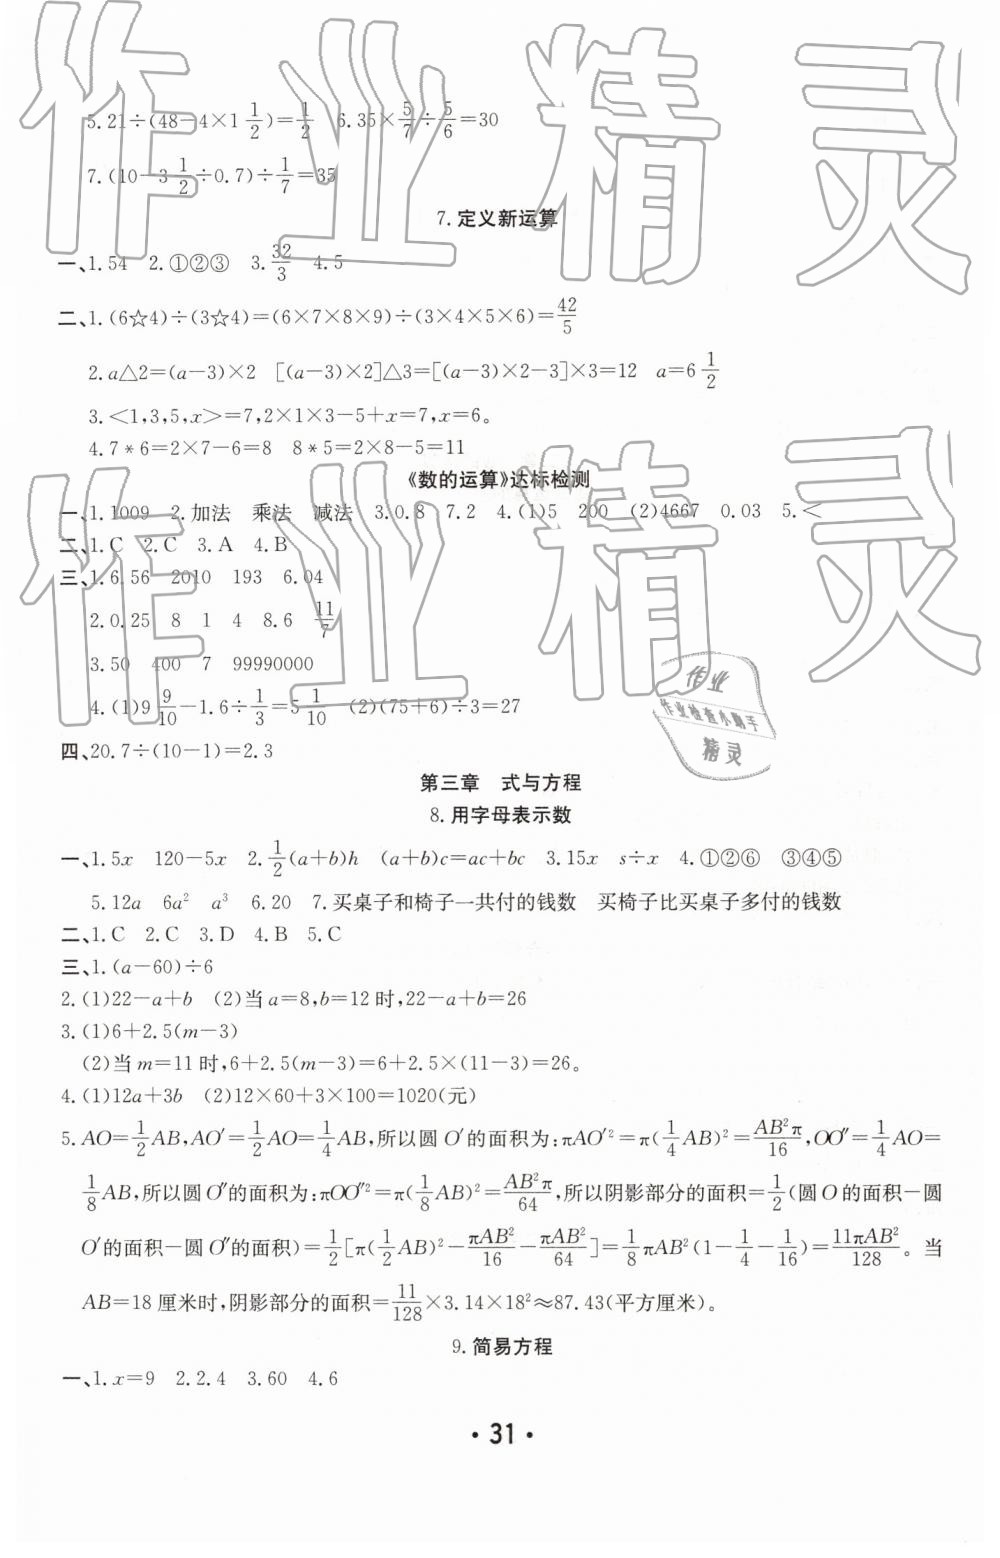 5.21÷(48-4×1 1/2)=1/2 6.35×5/7÷5/6=30
7.(10-3 1/2÷0.7)÷1/7=35
7.定义新运算
一、1.54 2.①②③ 3.32/3 4.5
二、1.(6☆4)÷(3☆4)=(6×7×8×9)÷(3×4×5×6)=42/5
2.a△2=(a-3)×2 [(a-3)×2]△3=[(a-3)×2-3]×3=12 a=6 1/2
3.<1,3,5,x>=7,2×1×3-5+x=7,x=6。
4.7*6=2×7-6=8 8*5=2×8-5=11
《数的运算》达标检测
一、1.1009 2.加法 乘法 减法 3.0.8 7.2 4.(1)5 200 (2)4667 0.03 5.<
二、1.C 2.C 3.A 4.B
三、1.6.56 2010 193 6.04
2.0.25 8 1 4 8.6 11/7
3.50 400 7 99990000
4.(1)9 9/10-1.6÷1/3=5 1/10 (2)(75+6)÷3=27
四、20.7÷(10-1)=2.3
第三章 式与方程
8.用字母表示数
一、1.5x 120-5x 2.1/2(a+b)h (a+b)c=ac+bc 3.15x s÷x 4.①②⑥ ③④⑤
5.12a 6a² a³ 6.20 7.买桌子和椅子一共付的钱数 买椅子比买桌子多付的钱数
二、1.C 2.C 3.D 4.B 5.C
三、1.(a-60)÷6
2.(1)22-a+b (2)当a=8,b=12时,22-a+b=26
3.(1)6+2.5(m-3)
(2)当m=11时,6+2.5(m-3)=6+2.5×(11-3)=26。
4.(1)12a+3b (2)12×60+3×100=1020(元)
5.AO=1/2AB,AO′=1/2AO=1/4AB,所以圆O′的面积为:πAO′²=π(1/4AB)²=AB²π/16,OO″=1/4AO=
1/8AB,所以圆O″的面积为:πOO″²=π(1/8AB)²=AB²π/64,所以阴影部分的面积=1/2(圆O的面积-圆
O′的面积-圆O″的面积)=1/2[π(1/2AB)²-πAB²/16-πAB²/64]=1/8πAB²(1-1/4-1/16)=11πAB²/128。当
AB=18厘米时,阴影部分的面积=11/128×3.14×18²≈87.43(平方厘米)。
9.简易方程
一、1.x=9 2.2.4 3.60 4.6
·31·
作业精灵
作业精灵
作业
作业检查小助手
精灵